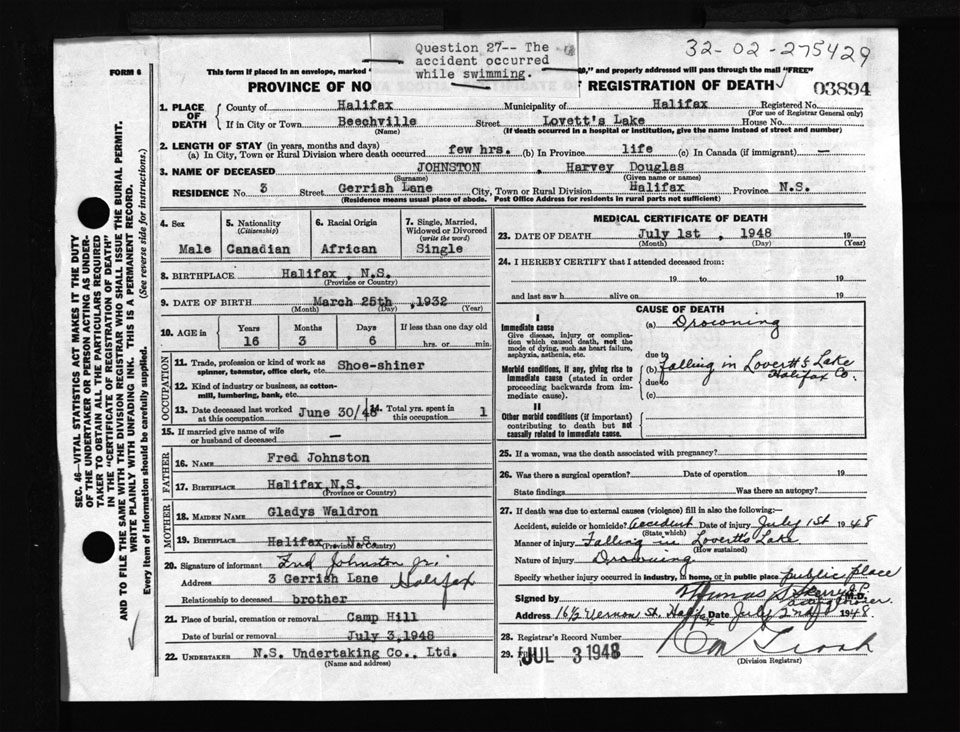 32-02-275429
Question 27-- The
accident occurred
while swimming.
FORM 6
This form if placed in an envelope, marked " " and properly addressed will pass through the mail "FREE"
PROVINCE OF NO REGISTRATION OF DEATH 03894
1. PLACE OF DEATH
County of Halifax Municipality of Halifax Registered No.
(For use of Registrar General only)
If in City or Town Beechville Street Lovett's Lake House No.
(Name) (If death occurred in a hospital or institution, give the name instead of street and number)
2. LENGTH OF STAY (in years, months and days)
(a) In City, Town or Rural Division where death occurred few hrs. (b) In Province life (c) In Canada (if immigrant) —
3. NAME OF DECEASED JOHNSTON , Harvey Douglas
(Surname) (Given name or names)
RESIDENCE No. 3 Street Gerrish Lane City, Town or Rural Division Halifax Province N.S.
(Residence means usual place of abode. Post Office Address for residents in rural parts not sufficient)
4. Sex
Male
5. Nationality
(Citizenship)
Canadian
6. Racial Origin
African
7. Single, Married,
Widowed or Divorced
(write the word)
Single
8. BIRTHPLACE Halifax, N.S.
(Province or Country)
9. DATE OF BIRTH March 25th, 1932
(Month) (Day) (Year)
10. AGE in
Years Months Days If less than one day old
16 3 6 hrs. or min.
OCCUPATION
11. Trade, profession or kind of work as
spinner, teamster, office clerk, etc. Shoe-shiner
12. Kind of industry or business, as cotton-
mill, lumbering, bank, etc.
13. Date deceased last worked
at this occupation June 30/48
14. Total yrs. spent
in this occupation 1
15. If married give name of wife
or husband of deceased —
FATHER
16. NAME Fred Johnston
17. BIRTHPLACE Halifax, N.S.
(Province or Country)
MOTHER
18. MAIDEN NAME Gladys Waldron
19. BIRTHPLACE Halifax, N.S.
(Province or Country)
20. Signature of informant Fred Johnston Jr.
Address 3 Gerrish Lane Halifax
Relationship to deceased brother
21. Place of burial, cremation or removal Camp Hill
Date of burial or removal July 3, 1948
22. UNDERTAKER N.S. Undertaking Co., Ltd.
(Name and address)
MEDICAL CERTIFICATE OF DEATH
23. DATE OF DEATH July 1st, 1948 19
(Month) (Day) (Year)
24. I HEREBY CERTIFY that I attended deceased from:
19 to 19
and last saw h alive on 19
CAUSE OF DEATH
I
Immediate cause
Give disease, injury or complica-
tion which caused death, not the
mode of dying, such as heart failure,
asphyxia, asthenia, etc.
(a) Drowning
due to
Morbid conditions, if any, giving rise to
immediate cause (stated in order
proceeding backwards from im-
mediate cause).
(b) Falling in Lovertt's Lake
Halifax Co.
due to
(c)
II
Other morbid conditions (if important)
contributing to death but not
causally related to immediate cause.
25. If a woman, was the death associated with pregnancy?
26. Was there a surgical operation? Date of operation 19
State findings Was there an autopsy?
27. If death was due to external causes (violence) fill in also the following:—
Accident, suicide or homicide? Accident Date of injury July 1st 1948
(State which)
Manner of injury Falling in Lovertt's Lake
(How sustained)
Nature of injury Drowning
Specify whether injury occurred in industry, in home, or in public place public place
Signed by Thomas M.D.
Address 16½ Vernon St. Halifax Date July 2nd 1948
28. Registrar's Record Number
29. JUL 3 1948
(Division Registrar)
SEC. 46—VITAL STATISTICS ACT MAKES IT THE DUTY
OF THE UNDERTAKER OR PERSON ACTING AS UNDER-
TAKER TO OBTAIN ALL THE PARTICULARS REQUIRED
IN THE "CERTIFICATE OF REGISTRATION OF DEATH"
AND TO FILE THE SAME WITH THE DIVISION REGISTRAR WHO SHALL ISSUE THE BURIAL PERMIT.
WRITE PLAINLY WITH UNFADING INK. THIS IS A PERMANENT RECORD.
Every item of information should be carefully supplied. (See reverse side for instructions.)